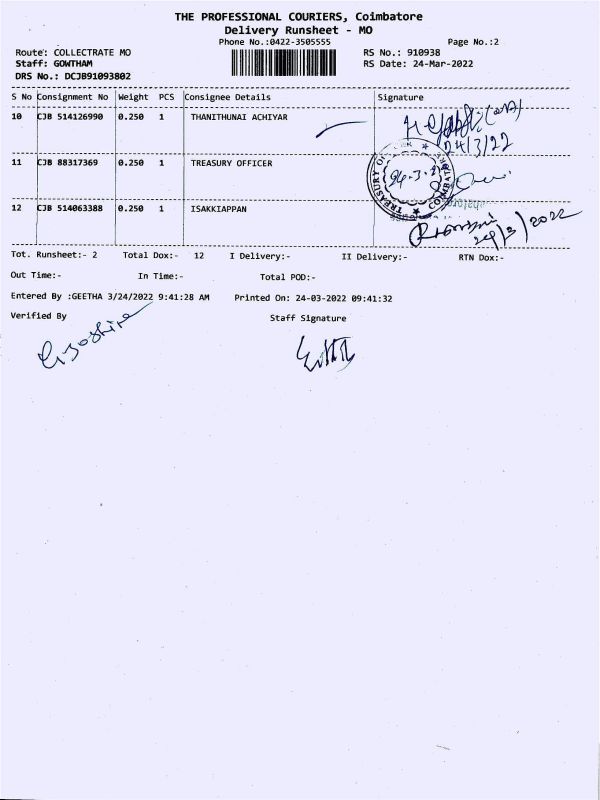 THE PROFESSIONAL COURIERS, Coimbatore
Delivery Runsheet - MO
Phone No.:0422-3505555
Page No.:2
Route: COLLECTRATE MO
RS No.: 910938
Staff: GOWTHAM
RS Date: 24-Mar-2022
DRS No.: DCJB91093802
S No Consignment No Weight PCS Consignee Details Signature
10 CJB 514126990 0.250 1 THANITHUNAI ACHIYAR
24/3/22
11 CJB 88317369 0.250 1 TREASURY OFFICER
12 CJB 514063388 0.250 1 ISAKKIAPPAN
Tot. Runsheet:- 2 Total Dox:- 12 I Delivery:- II Delivery:- RTN Dox:-
Out Time:- In Time:- Total POD:-
Entered By :GEETHA 3/24/2022 9:41:28 AM Printed On: 24-03-2022 09:41:32
Verified By Staff Signature